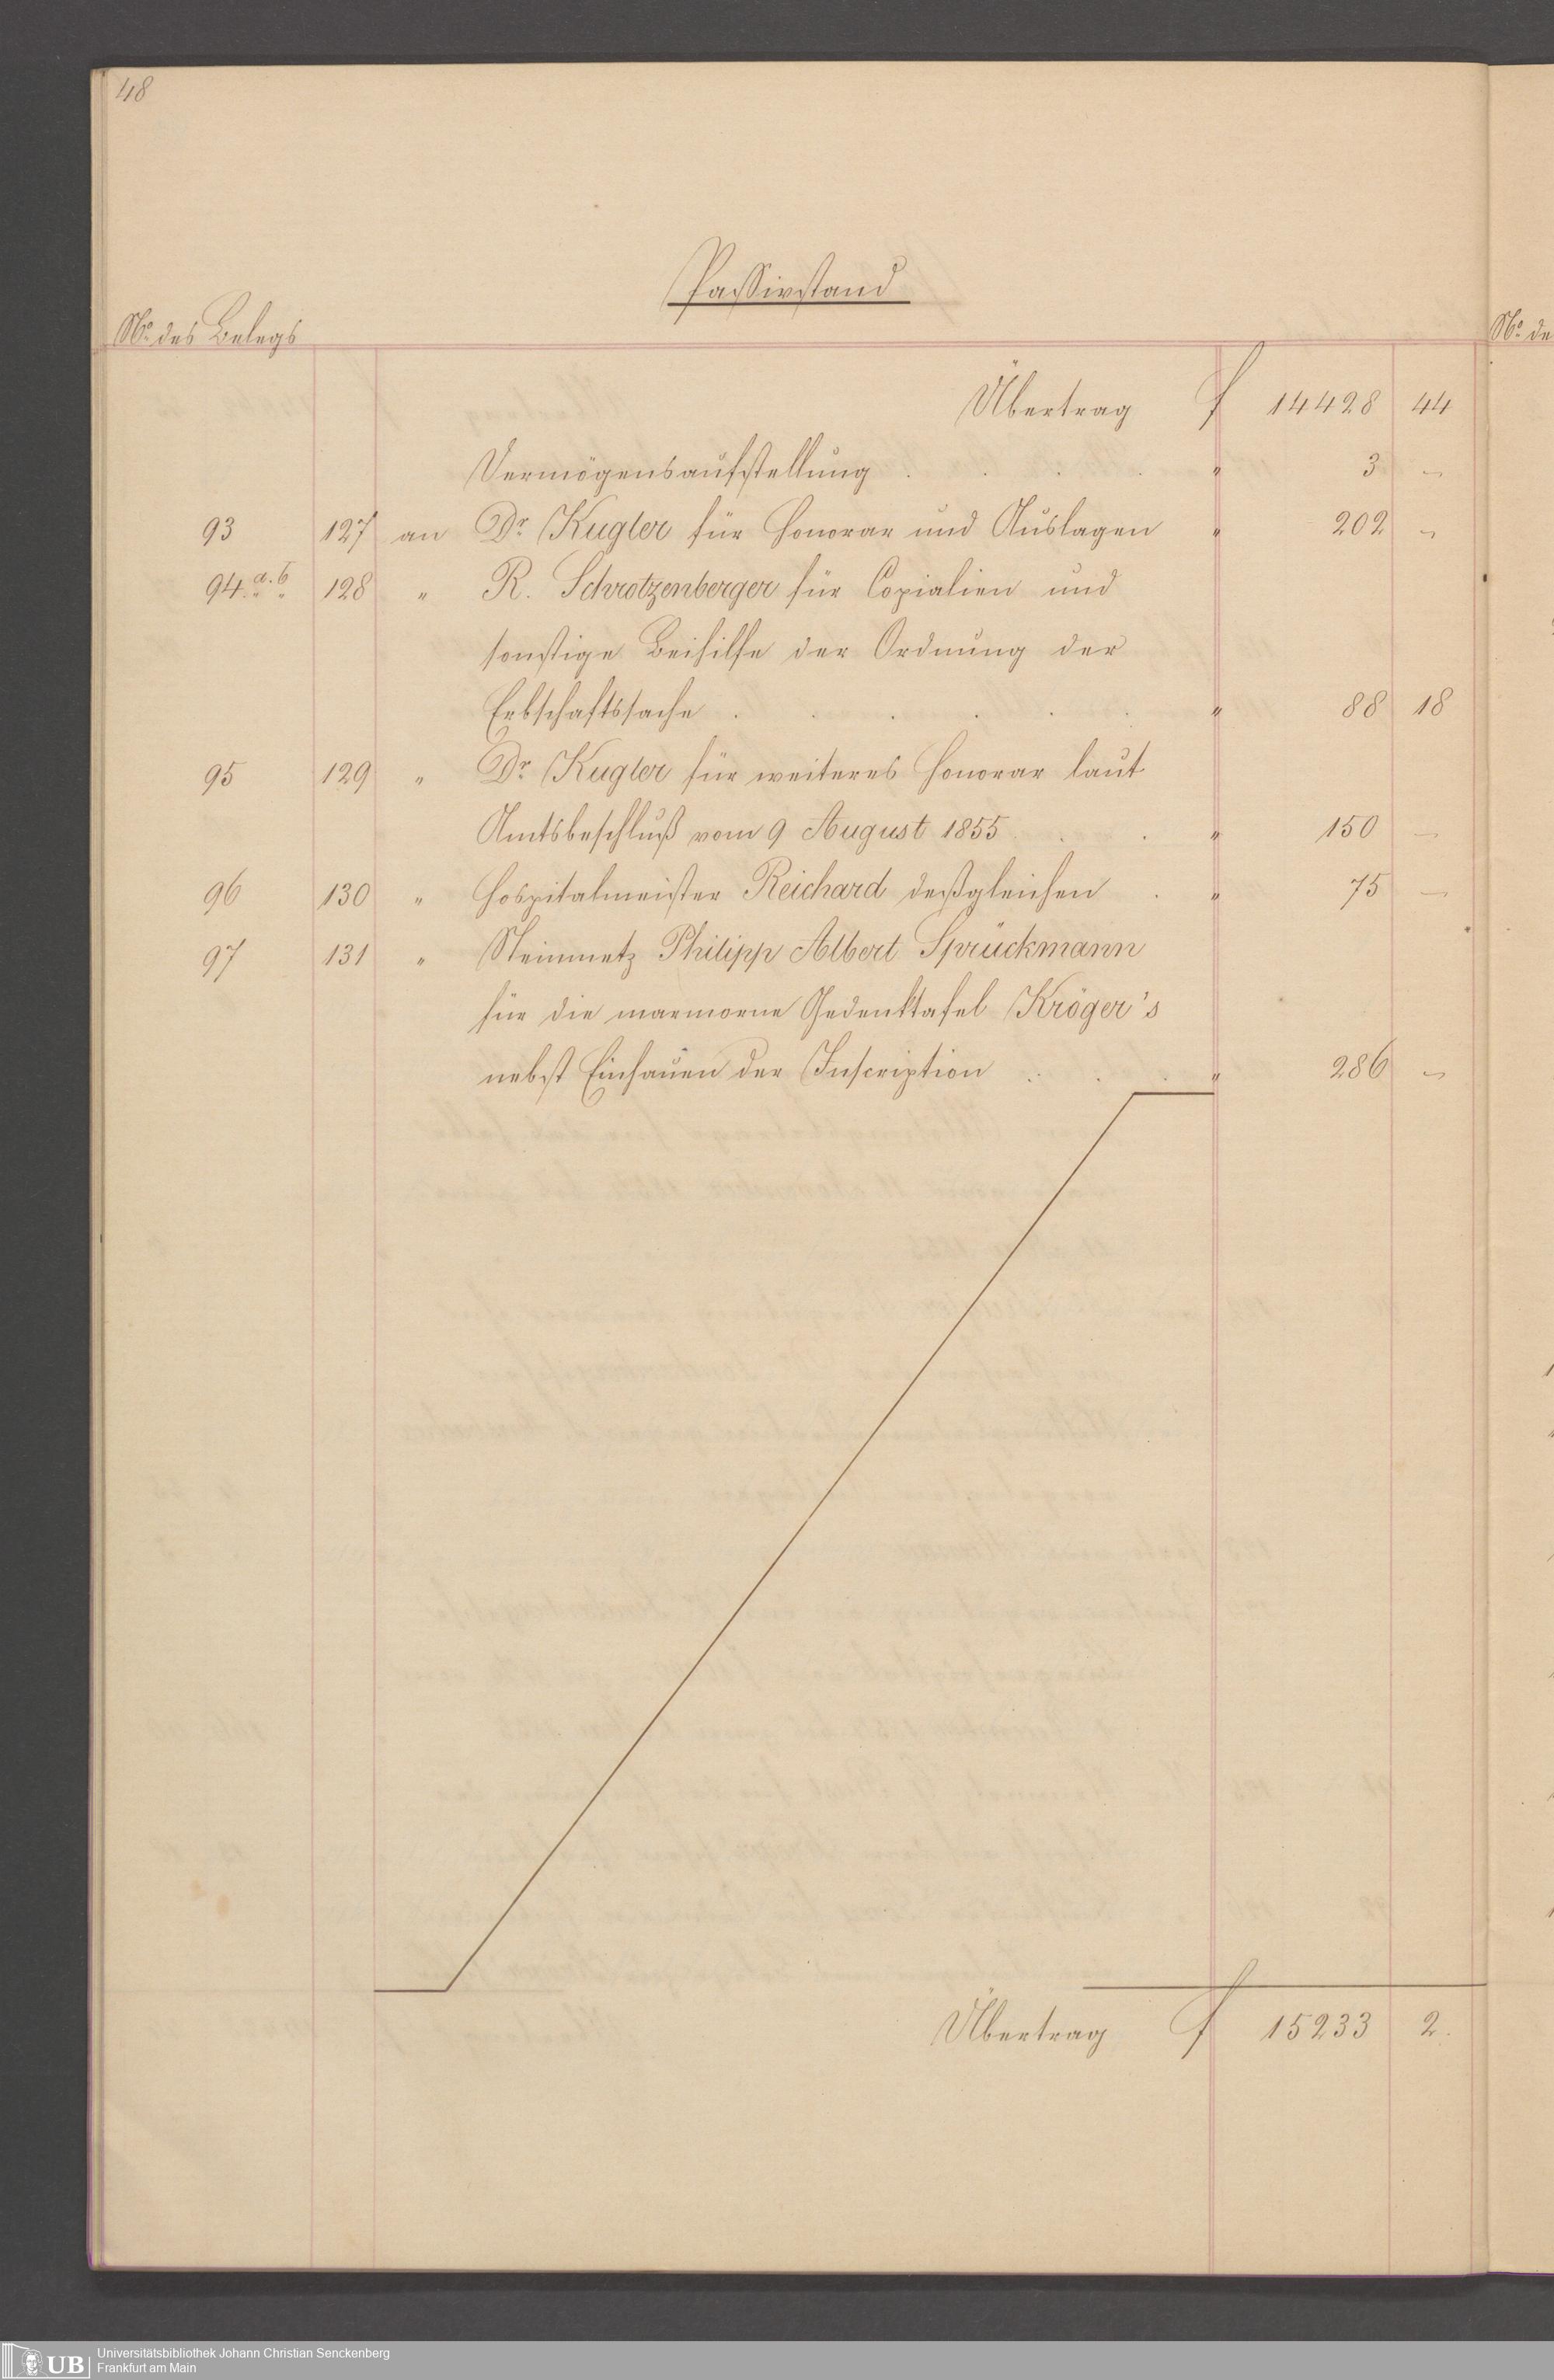 48
Passivstand
No. des Belegs
No. de
Übertrag f 14428 44
Vermögensaufstellung . . . . " 3 —
93 127 an Dr. Kugler für Honorar und Auslagen " 202 —
94. a. b 128 " R. Schrotzenberger für Copialien und
sonstige Beihilfe der Ordnung der
Erbschaftssache . . . . . . " 88 18
95 129 " Dr. Kugler für weiteres Honorar laut
Amtsbeschluß vom 9 August 1855 . . . " 150 —
96 130 " Hospitalmeister Reichard deßgleichen . " 75 —
97 131 " Steinmetz Philipp Albert Sprückmann
für die marmorne Gedenktafel Kröger's
nebst Einhauen der Inscription . . . " 286 —
Übertrag f 15233 2.
UB Universitätsbibliothek Johann Christian Senckenberg
Frankfurt am Main